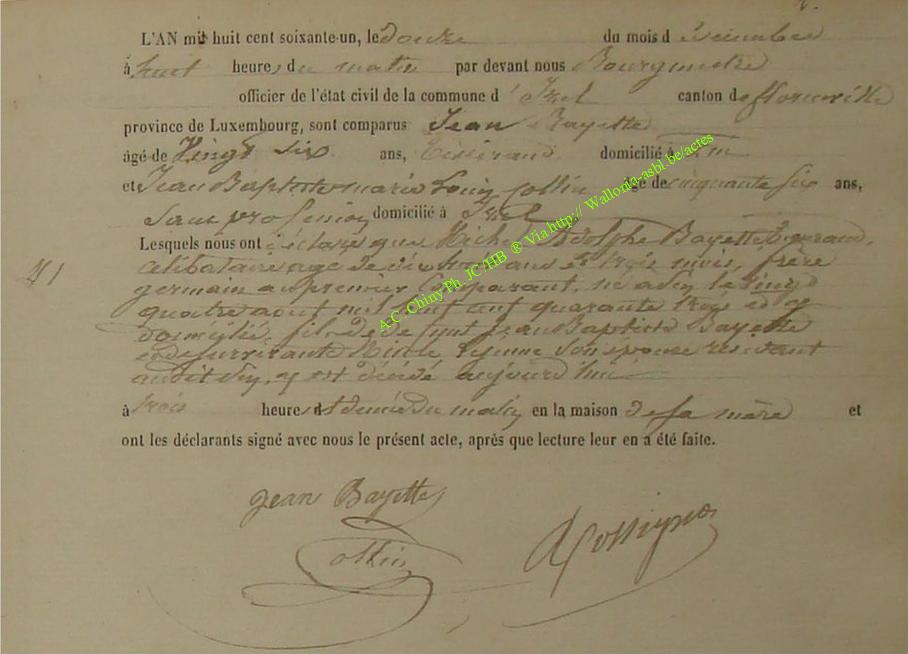 L'AN mil huit cent soixante-un, le douze du mois d écembre
à huit heures du matin par devant nous Bourgmestre
officier de l'état civil de la commune d' Izel canton de florenville
province de Luxembourg, sont comparus Jean Bayette
âgé de Vingt six ans, tisserand domicilié à
et Jean Baptiste marie Louis Collin âgé de cinquante six ans,
Sans profession domicilié à Izel
Lesquels nous ont déclaré que Michel Adolphe Bayette Tisserand,
41
célibataire agé de dix huit ans et trois mois, frère
germain au premier Comparant, né à Izel le vingt
quatre aout mil huit cent quarante trois et y
domicilié, fils de défunt Jean Baptiste Bayette
et de survivante Lejeune son épouse résidant
audit Izel, y est décédé aujourd'hui
à trois heures et demie du matin en la maison de sa mère et
ont les déclarants signé avec nous le présent acte, après que lecture leur en a été faite.
jean Bayette
Collin
A.C. Chiny Ph. JC /HB ® Via http:// Wallonia-asbl.be/actes